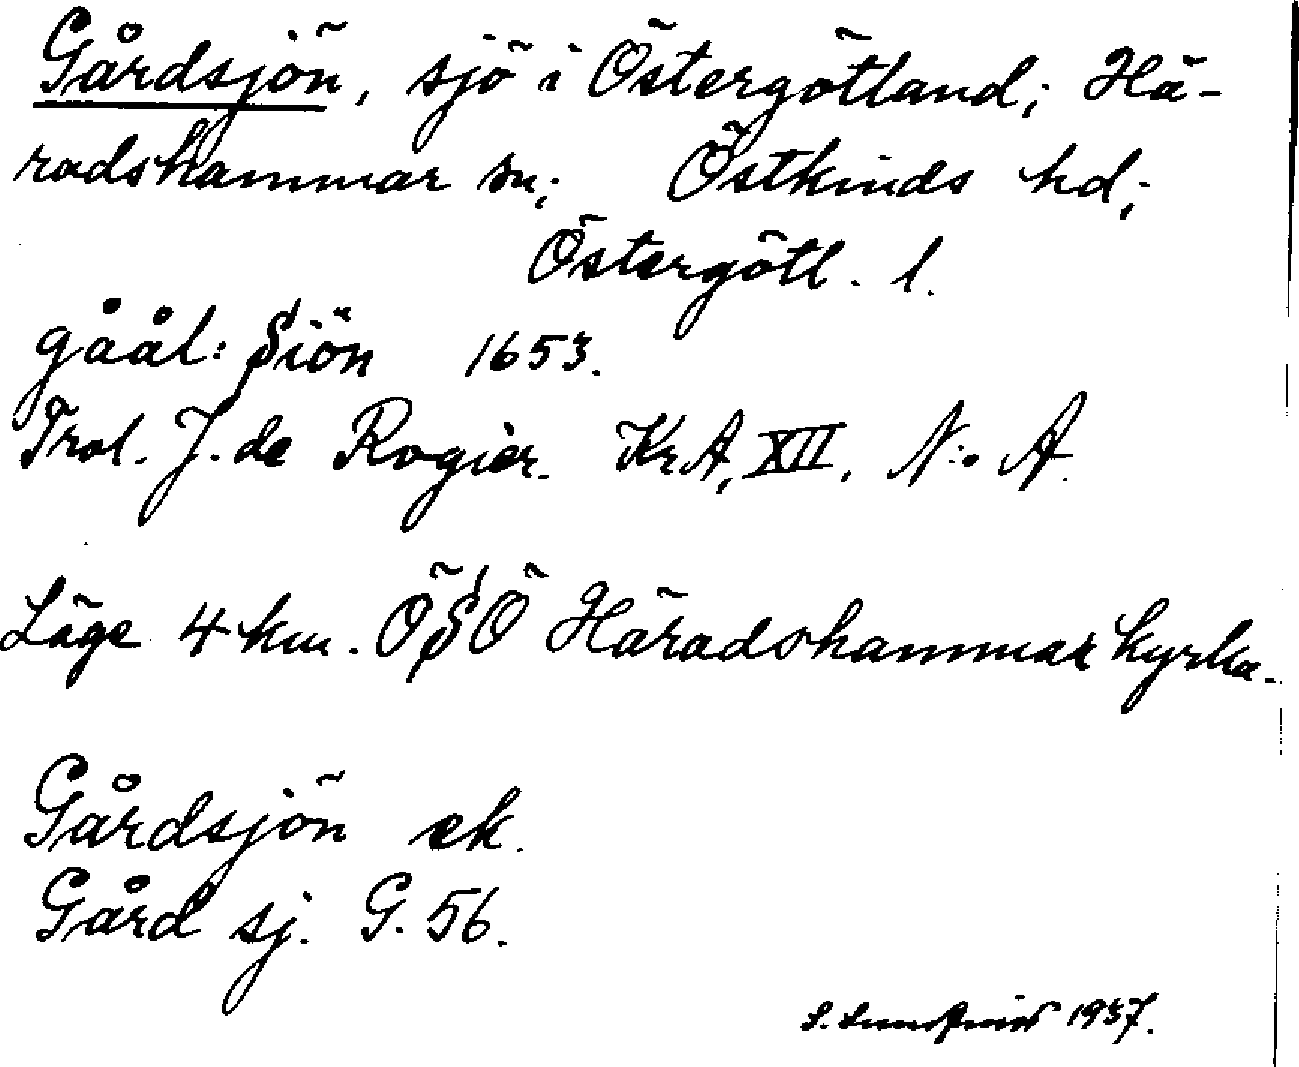 Gårdsjön, sjö i Östergötland; Hä-
radshammar sn; Östkinds hd;
Östergötl. l.
gåål: Siön 1653.
Trol. J. de Rogier. KrA, XII. N:o A.
Läge 4 km. ÖSÖ Häradshammar kyrka.
Gårdsjön ek.
Gård sj. G. 56.
S. 1937.